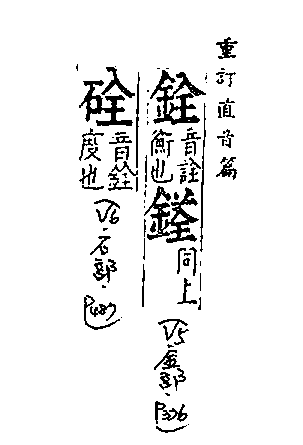 重訂直音篇
銓 音詮
衡也
同上
V5.金部.
硂 音銓
度也
V6.石部.
P487